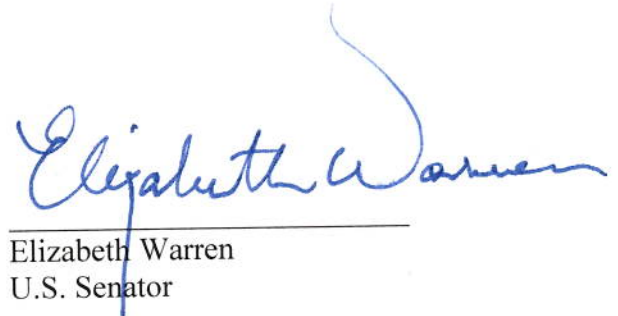 Elizabeth Warren
Elizabeth Warren
U.S. Senator